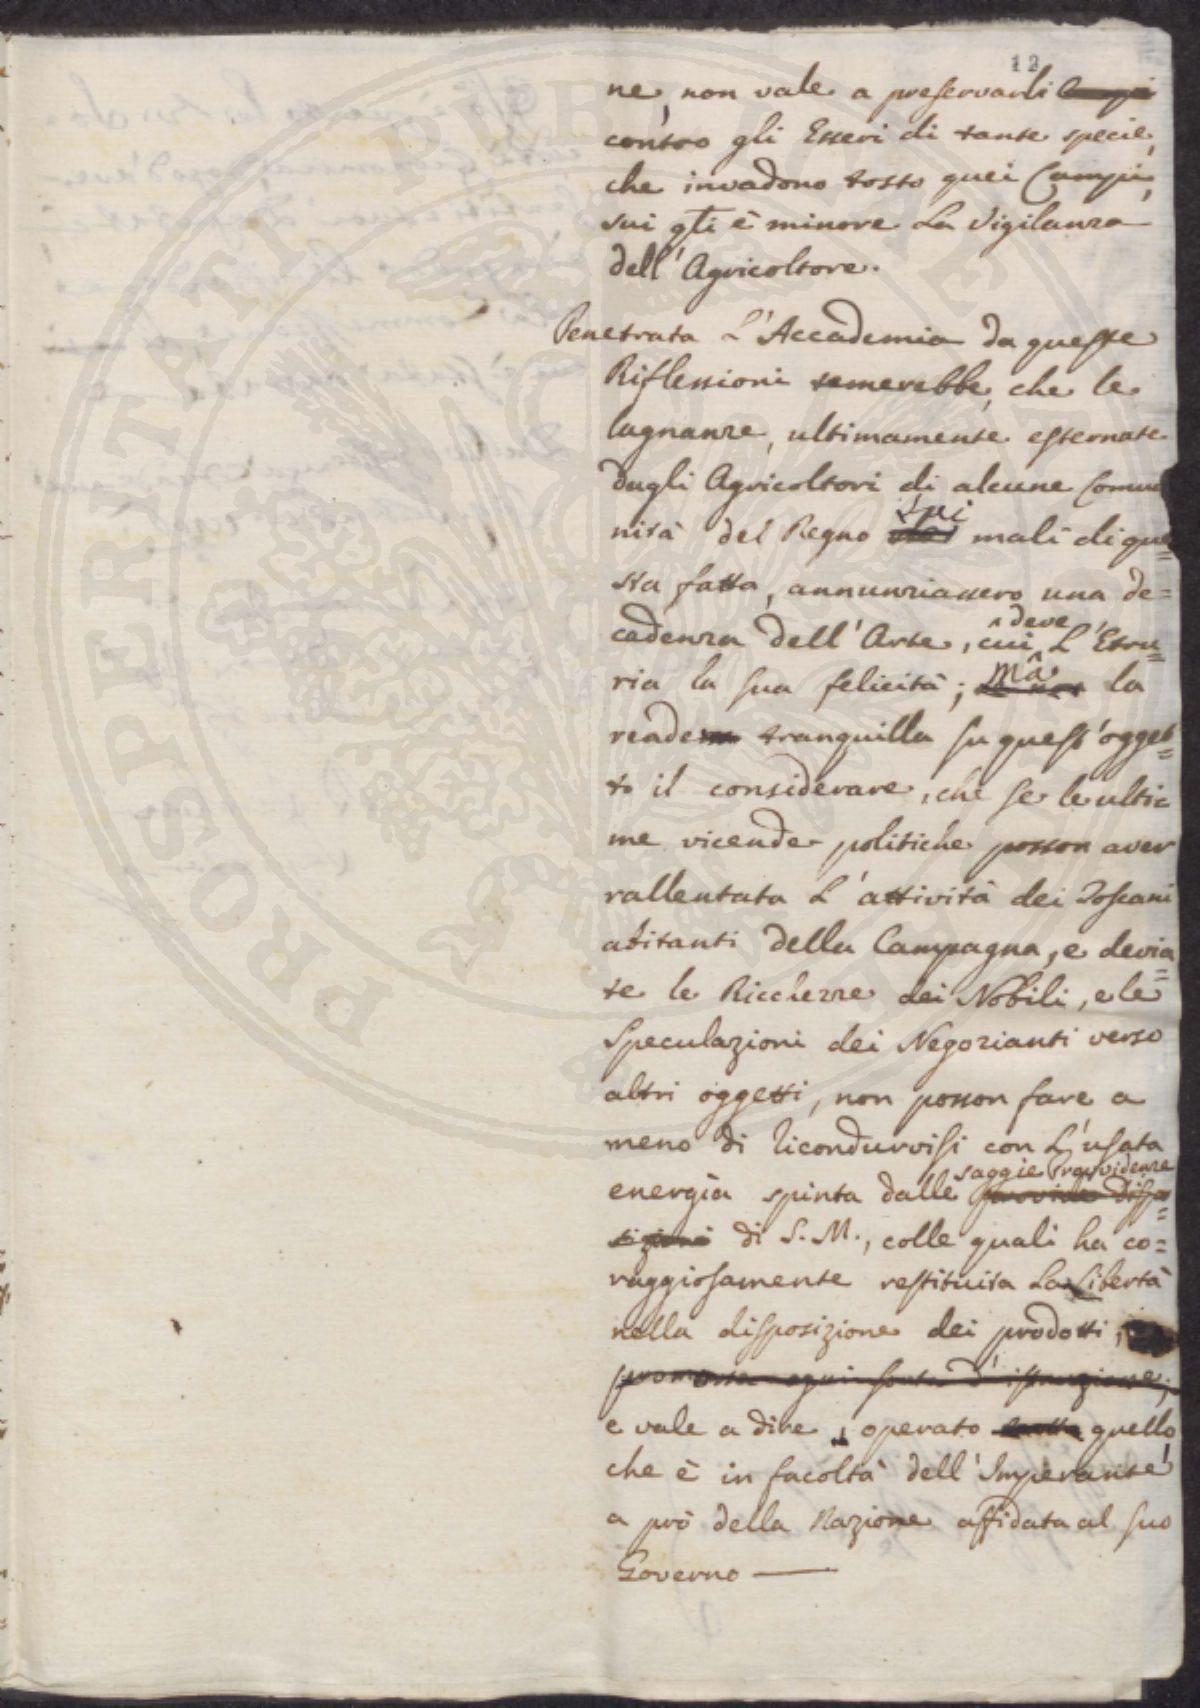 12
ne, non vale a preservarli
contro gli Esseri di tante specie,
che invadono tosto quei Campi,
sui qti è minore La Vigilanza
dell'Agricoltore.
Penetrata L'Accademia da queste
Riflessioni temerebbe, che le
lagnanze, ultimamente esternate
dagli Agricoltori di alcune Comu
nità del Regno spei mali di que=
sta fatta, annunziassero una de=
cadenza dell'Arte, cui deve L'Etru=
ria la sua felicità; Ma la
rende tranquilla su quest'ogget=
to il considerare, che se le ulti=
me vicende politiche posson aver
rallentata L'attività dei Toscani
abitanti della Campagna, e devia=
te le Ricchezze dei Nobili, e le
Speculazioni dei Negozianti verso
altri oggetti, non posson fare a
meno di ricondurvisi con L'usata
energia spinta dalle saggie Provvidenze provide dispo=
sizioni di S. M., colle quali ha co=
raggiosamente restituita La Libertà
nella disposizione dei prodotti,
promossa ogni sorta d'istruzione,
e vale a dire, operato tutto quello,
che è in facoltà dell'Imperante
a prò della Nazione affidata al suo
Governo —